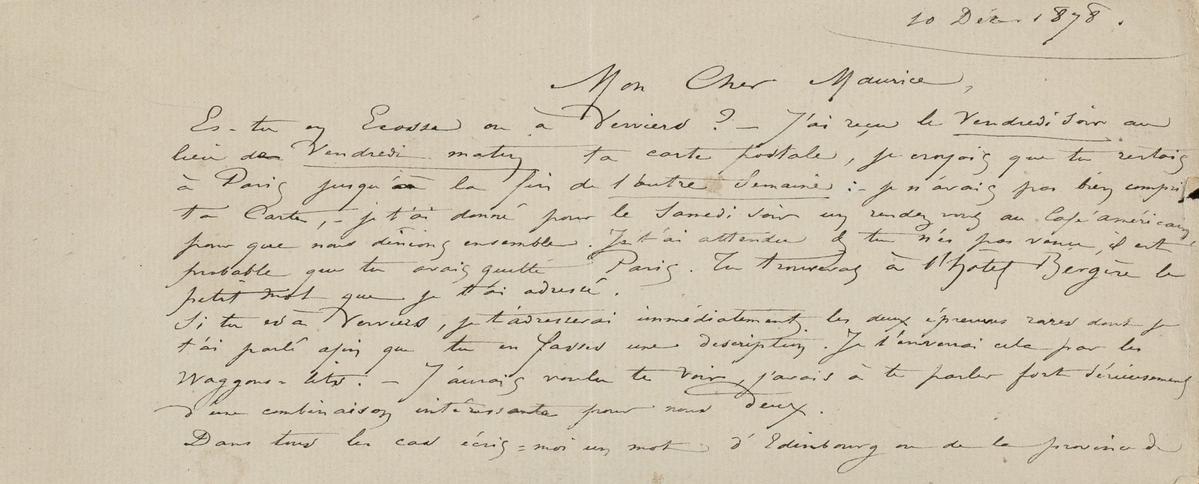 10 Déc. 1878.
Mon Cher Maurice,
Es-tu en Ecosse ou à Verviers ? – J'ai reçu le Vendredi soir au
lieu de Vendredi matin ta carte postale, je croyais que tu restais
à Paris jusqu'à la fin de l'autre Semaine : – je n'avais pas bien compris
ta Carte, – je t'ai donné pour le Samedi soir un rendez vous au Café américain
pour que nous dinions ensemble. Je t'ai attendu & tu n'es pas venu, il est
probable que tu avais quitté Paris. Tu trouveras à l'hôtel Bergère le
petit mot que je t'ai adressé.
Si tu es à Verviers, je t'adresserai immédiatement les deux épreuves rares dont je
t'ai parlé afin que tu en fasses une description. Je t'enverrai cela par les
Waggons = lits. – J'aurais voulu te voir, j'avais à te parler fort sérieusement
d'une combinaison intéressante pour nous deux.
Dans tous les cas écris = moi un mot d'Edinbourg ou de la province de